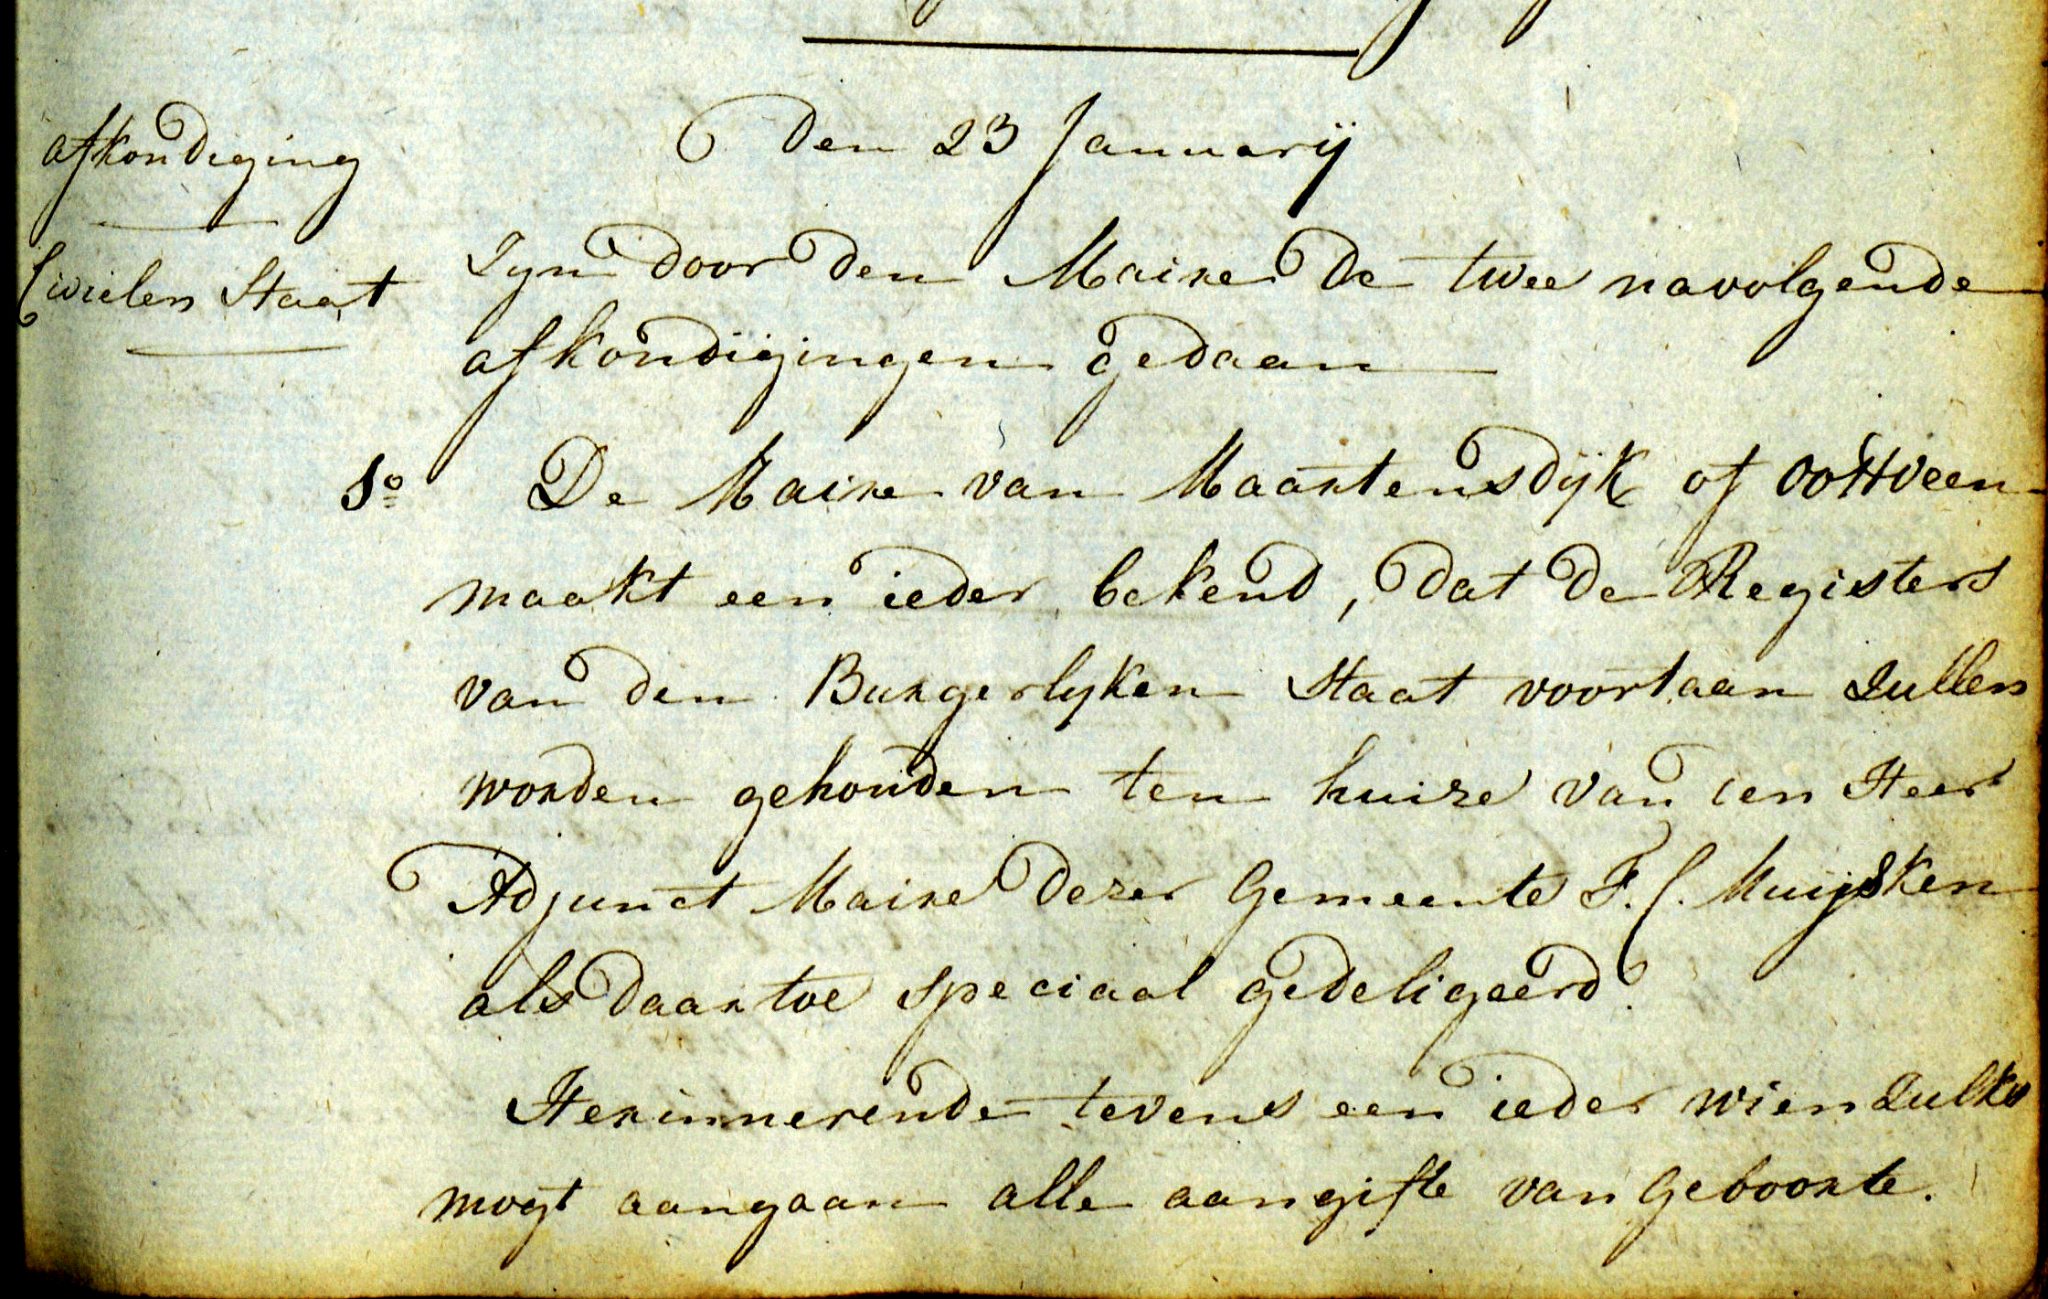 Den 23 Januarij
afkondiging
Civielen Staat
Zyn door den Maire de twee navolgende
afkondigingen gedaan
1o De Maire van Maartensdijk of oostveen
maakt een ieder bekend, dat de Registers
van den Burgerlyken Staat voortaan zullen
worden gehouden ten huize van den Heer
Adjunct Maire dezer Gemeente F. C. Muijsken
als daartoe speciaal gedeligeerd.
Herinnerende tevens een ieder wien zulks
mogt aangaan alle aangifte van Geboorte.